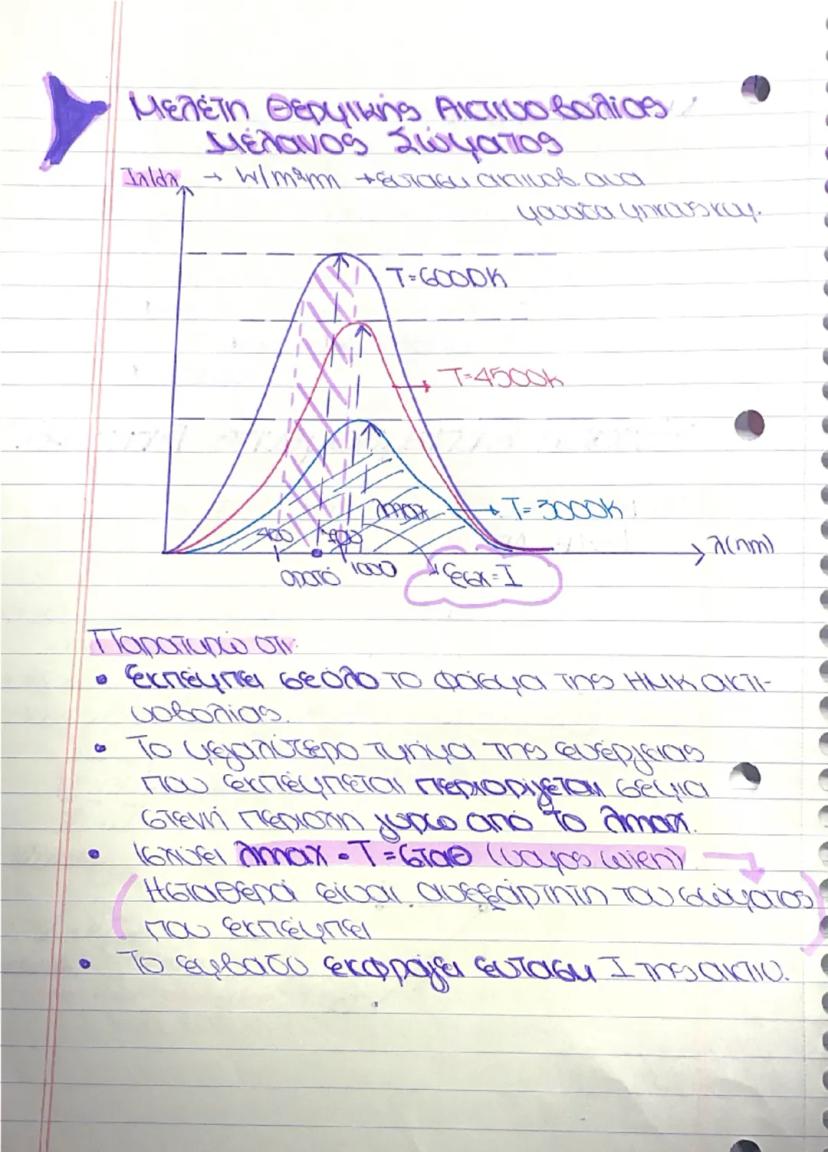 Μελέτη Θερμικής Ακτινοβολίας
Μέλανος Σώματος
Iλ/dλ → W/m²m → ένταση ακτινοβ. ανα
μονάδα μήκους κυμ.
T=6000K
T=4500K
λmax → T=3000K
400 700
ορατό 1000 Εολ=I λ(nm)
Παρατηρώ οτι:
• Εκπέμπει σε όλο το φάσμα της ΗΜΚ ακτι-
νοβολίας.
• Το μεγαλύτερο τμήμα της ενέργειας
που εκπέμπεται περιορίζεται σε μια
στενή περιοχή γύρω από το λmax.
• Ισχύει λmax · T = σταθ (νόμος Wien)
(Η σταθερά είναι ανεξάρτητη του σώματος)
που εκπέμπει
• Το εμβαδό εκφράζει ένταση I της ακτιν.